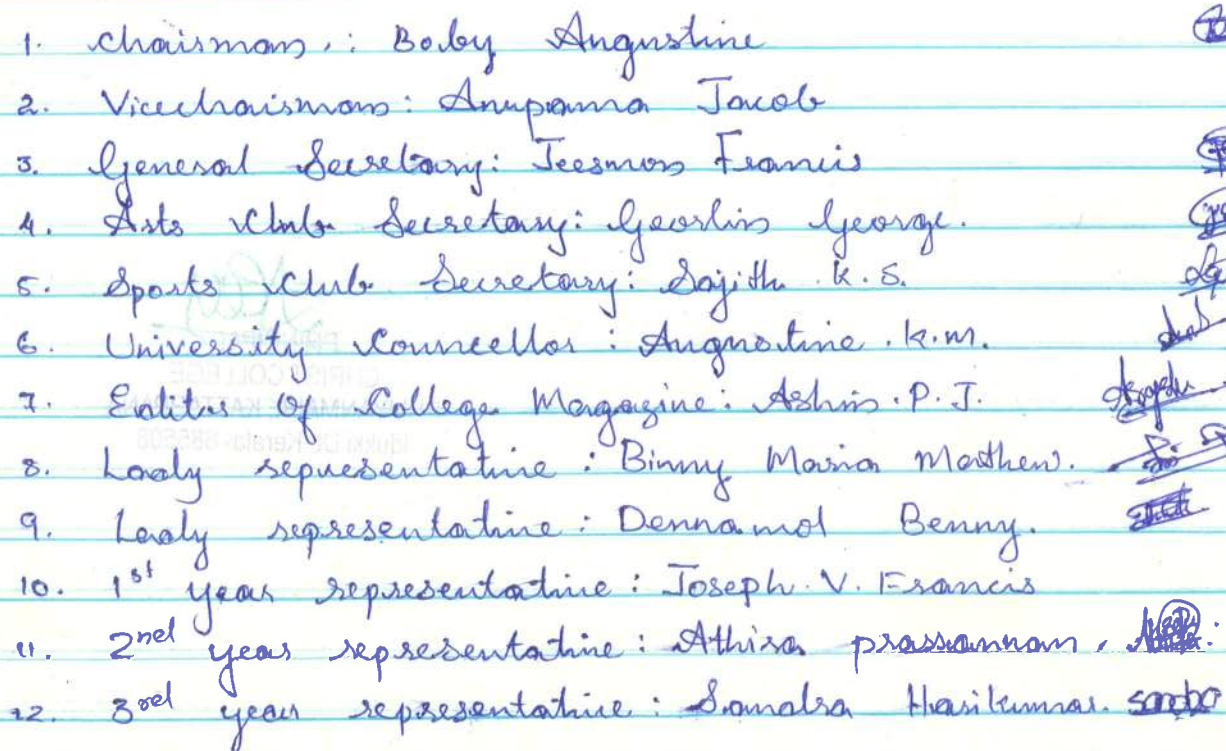 1. Chairman : Boby Augustine
2. Vicechairman : Anupama Jacob
3. General Secretary : Jeesmon Francis
4. Arts Club Secretary : Geoslin George.
5. Sports Club Secretary : Sajith K.S.
6. University Councellor : Augustine . K.M.
7. Editor Of College Magazine : Ashin . P. J.
8. Lady representative : Binny Maria Mathew.
9. Lady representative : Dennamol Benny.
10. 1st year representative : Joseph V. Francis
11. 2nd year representative : Athira prassannan .
12. 3rd year representative : Sandra Harikumar.
CHRIST COLLEGE
Idukki Dt Kerala - 685508